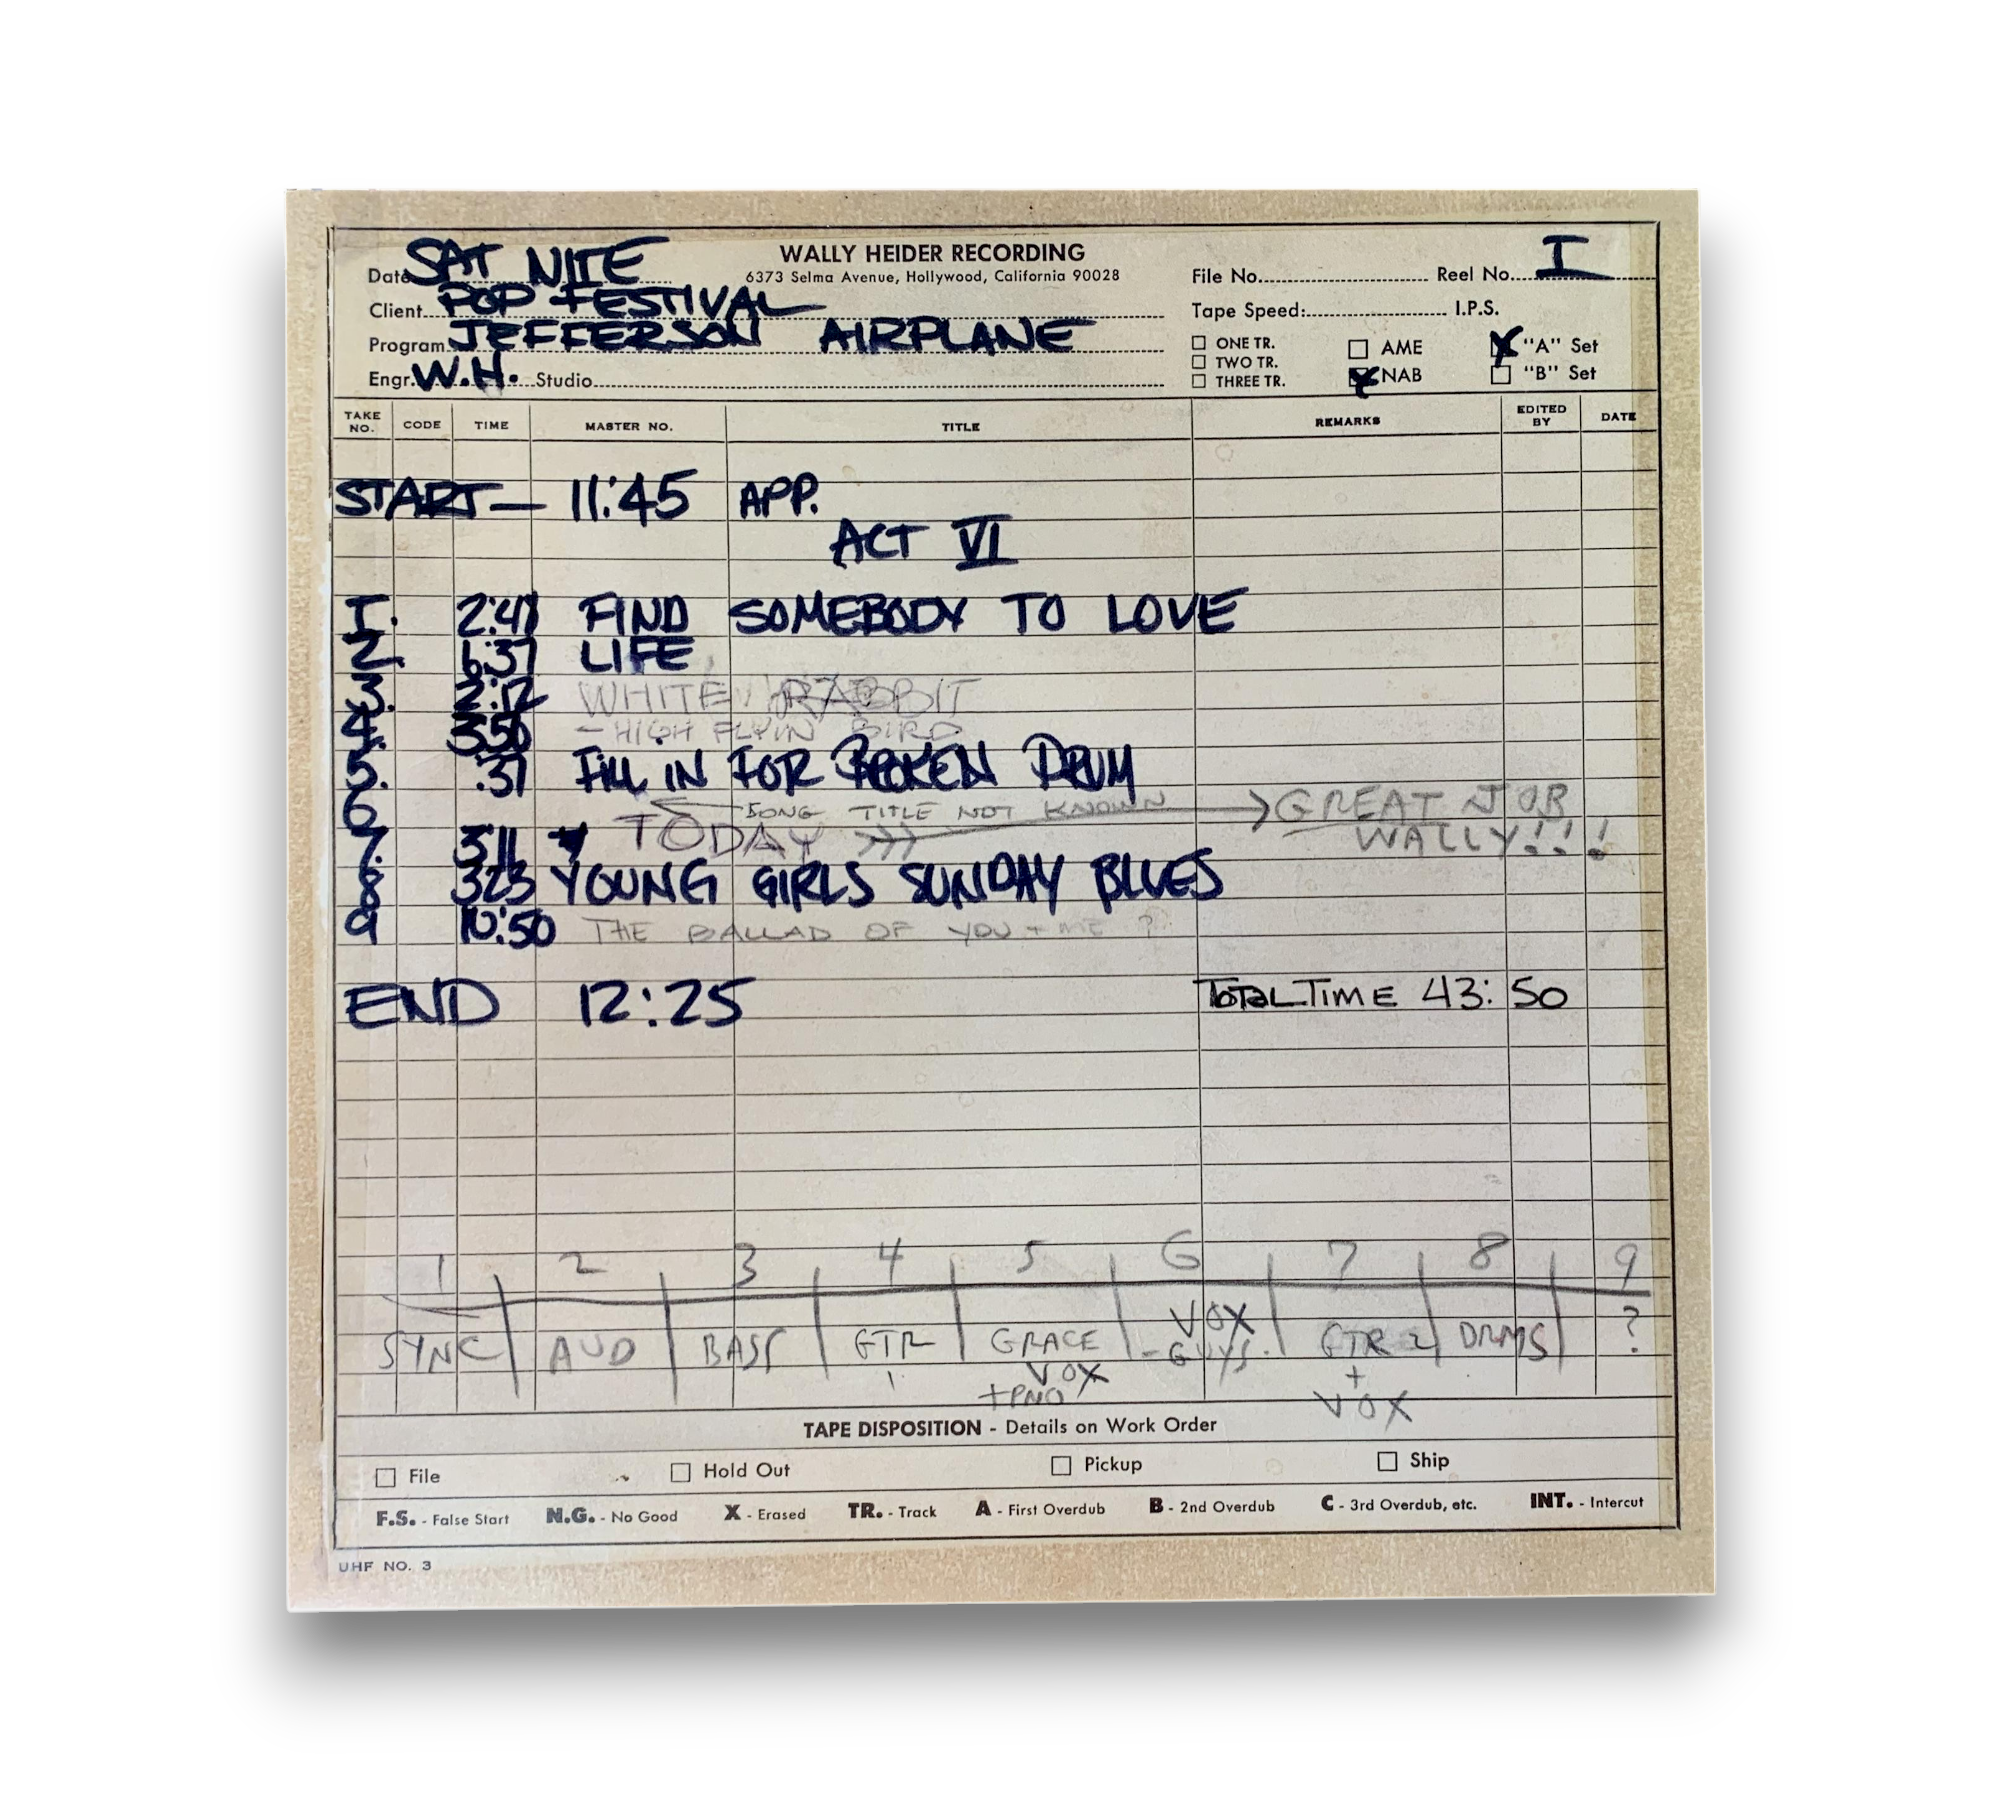 WALLY HEIDER RECORDING
6373 Selma Avenue, Hollywood, California 90028
Date SAT NITE
Client POP FESTIVAL
Program JEFFERSON AIRPLANE
Engr. W.H. Studio
File No. Reel No. I
Tape Speed: I.P.S.
ONE TR. AME "A" Set
TWO TR.
THREE TR. NAB "B" Set
TAKE NO. CODE TIME MASTER NO. TITLE REMARKS EDITED BY DATE
START — 11:45 APP.
ACT VI
1. FIND SOMEBODY TO LOVE
2. 6:37 LIFE
3. 2:12 WHITE RABBIT
4. 3:50 - HIGH FLYIN BIRD
5. :37 FILL IN FOR BROKEN DRUM
6 SONG TITLE NOT KNOWN GREAT JOB
7. 3:11 TODAY >>> WALLY!!!
8 3:23 YOUNG GIRLS SUNDAY BLUES
9 10:50 THE BALLAD OF YOU + ME ?
END 12:25 TOTAL TIME 43:50
1 2 3 4 5 6 7 8 9
SYNC AUD BASS GTR 1 GRACE VOX +PNO VOX -GUYS- GTR 2 + VOX DRMS ?
TAPE DISPOSITION - Details on Work Order
File Hold Out Pickup Ship
F.S. - False Start N.G. - No Good X - Erased TR. - Track A - First Overdub B - 2nd Overdub C - 3rd Overdub, etc. INT. - Intercut
UHF NO. 3